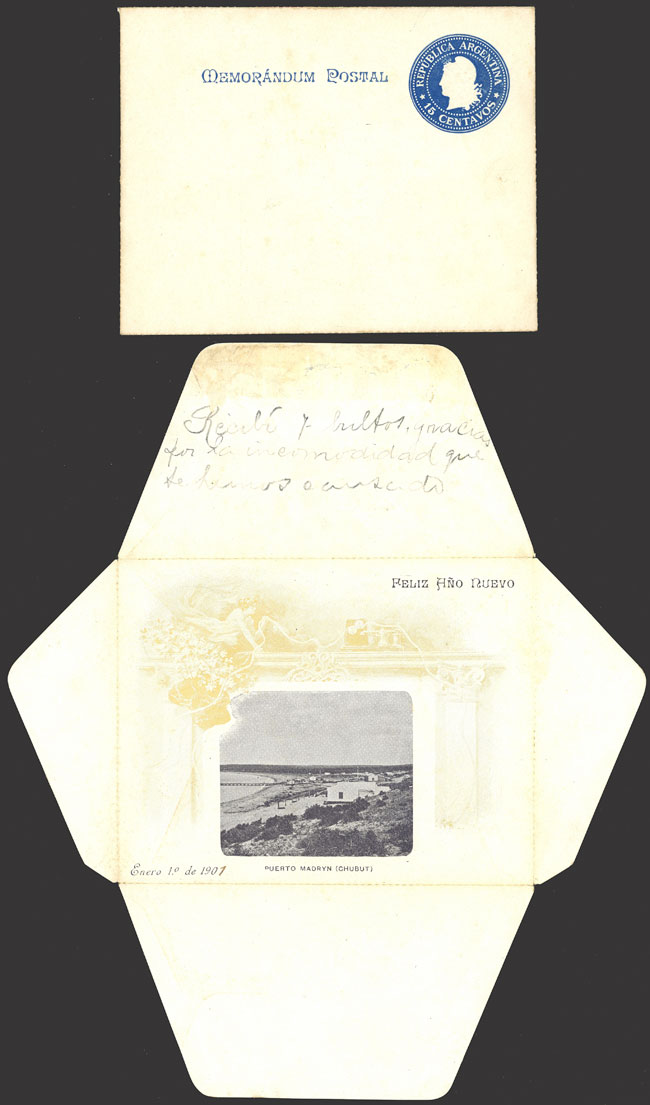 MEMORÁNDUM POSTAL
REPÚBLICA ARGENTINA
★ 15 CENTAVOS ★
Recibí 7 bultos, gracias
por la incomodidad que
te hemos causado
FELIZ AÑO NUEVO
Enero 1.º de 1901
PUERTO MADRYN (CHUBUT)